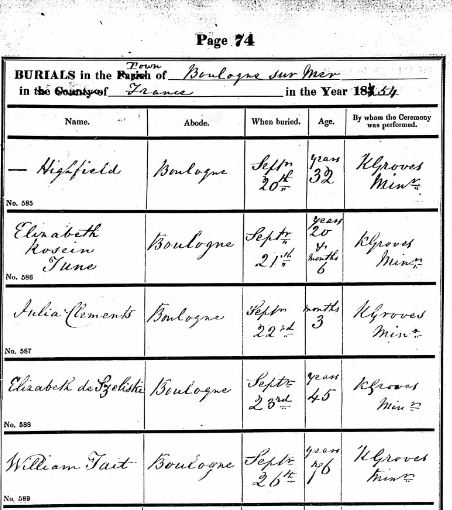 Page 74
BURIALS in the Parish Town of Boulogne sur Mer
in the County of France in the Year 1854
Name. Abode. When buried. Age. By whom the Ceremony was performed.
— Highfield Boulogne Septr 20th years 32 K Groves Minr
No. 585
Elizabeth Boulogne Septr 21st years 20 & months 6 K Groves Minr
June
No. 586
Julia Clements Boulogne Septr 22nd months 3 K Groves Minr
No. 587
Elizabeth de Szeliski Boulogne Septr 23rd years 45 K Groves Minr
No. 588
William Tait Boulogne Septr 26th years K Groves Minr
No. 589